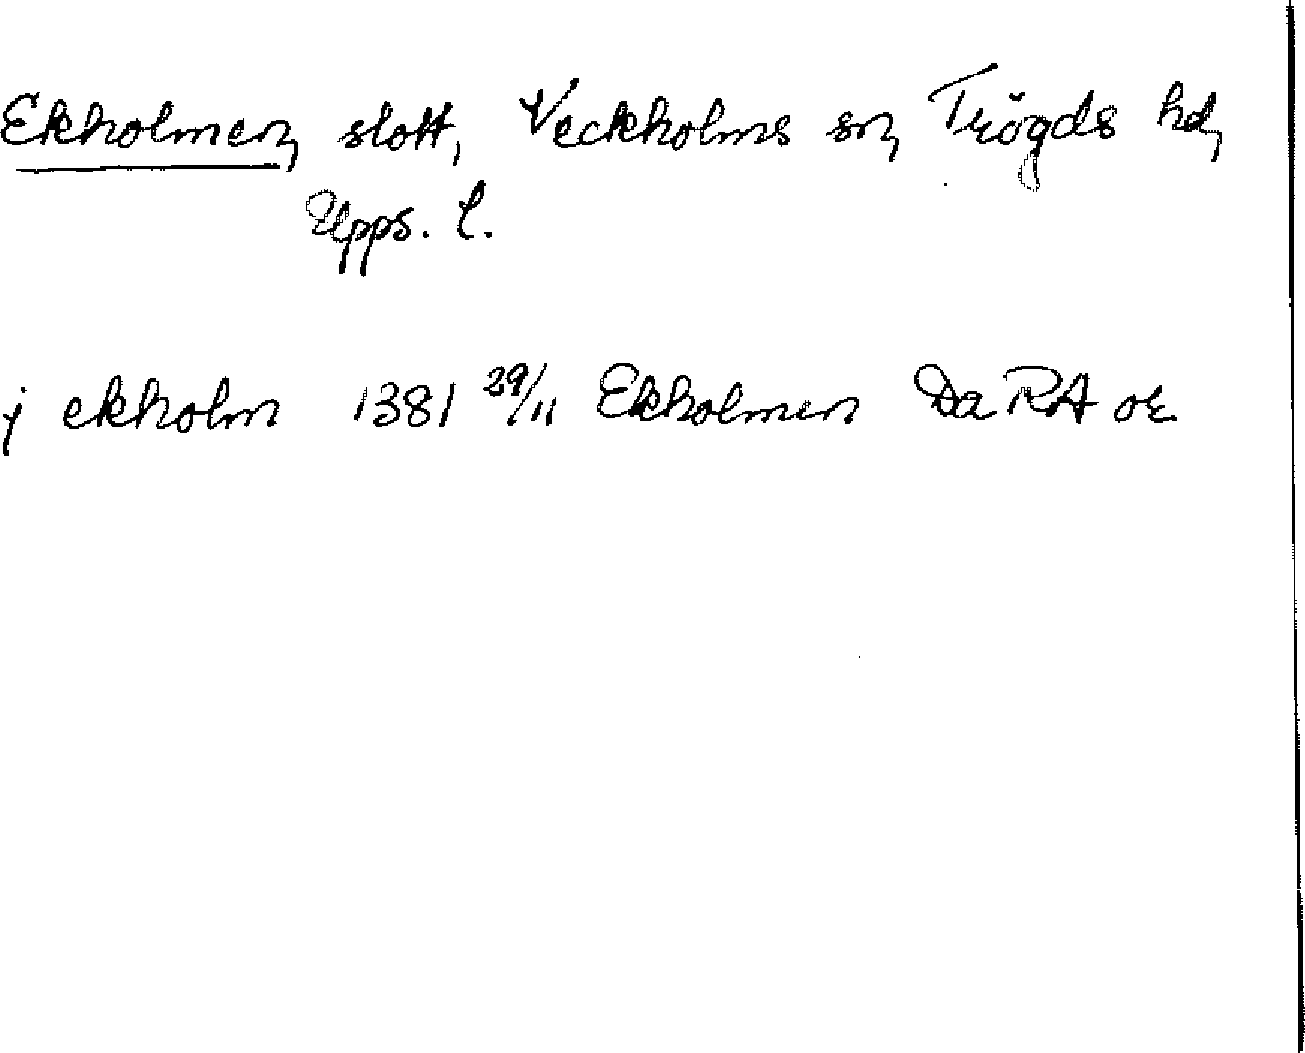 Ekholmen, slott, Veckholms sn, Trögds hd,
Upps. l.
j ekholm 1381 29/11 Ekholmen Da RA or.